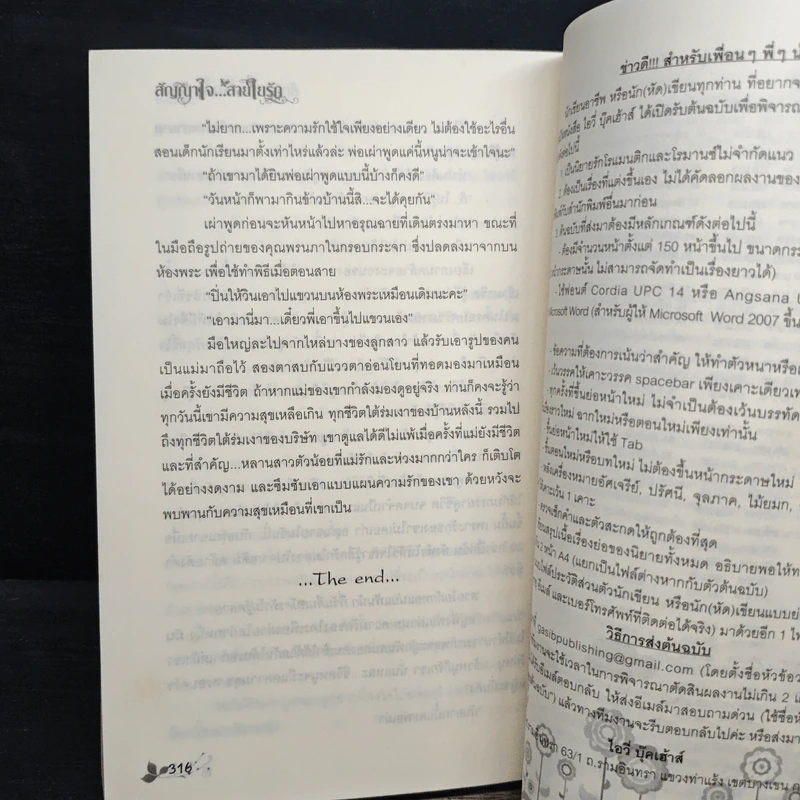 สัญญาใจ...สายใยรัก
"ไม่ยาก...เพราะความรักใช้ใจเพียงอย่างเดียว ไม่ต้องใช้อะไรอื่น
สอนเด็กนักเรียนมาตั้งเท่าไหร่แล้วล่ะ พ่อเผ่าพูดแค่นี้หนูน่าจะเข้าใจนะ"
"ถ้าเขามาได้ยินพ่อเผ่าพูดแบบนี้บ้างก็คงดี"
"วันหน้าก็พามากินข้าวบ้านนี้สิ...จะได้คุยกัน"
เผ่าพูดก่อนจะหันหน้าไปหาอรุณฉายที่เดินตรงมาหา ขณะที่
ในมือถือรูปถ่ายของคุณพรนภาในกรอบกระจก ซึ่งปลดลงมาจากบน
ห้องพระ เพื่อใช้ทำพิธีเมื่อตอนสาย
"ปิ่นให้วินเอาไปแขวนบนห้องพระเหมือนเดิมนะคะ"
"เอามานี่มา...เดี๋ยวพี่เอาขึ้นไปแขวนเอง"
มือใหญ่ละไปจากไหล่บางของลูกสาว แล้วรับเอารูปของคน
เป็นแม่มาถือไว้ สองตาสบกับแววตาอ่อนโยนที่ทอดมองมาเหมือน
เมื่อครั้งยังมีชีวิต ถ้าหากแม่ของเขากำลังมองดูอยู่จริง ท่านก็คงจะรู้ว่า
ทุกวันนี้เขามีความสุขเหลือเกิน ทุกชีวิตใต้ร่มเงาของบ้านหลังนี้ รวมไป
ถึงทุกชีวิตใต้ร่มเงาของบริษัท เขาดูแลได้ดีไม่แพ้เมื่อครั้งที่แม่ยังมีชีวิต
และที่สำคัญ...หลานสาวตัวน้อยที่แม่รักและห่วงมากกว่าใคร ก็เติบโต
ได้อย่างงดงาม และซึมซับเอาแบบแผนความรักของเขา ด้วยหวังจะ
พบพานกับความสุขเหมือนที่เขาเป็น
...The end...
316
ข่าวดี!!! สำหรับเพื่อน ๆ พี่ ๆ
นักเขียนอาชีพ หรือนัก(หัด)เขียนทุกท่าน ที่อยากจะ
ไอวี่ บุ๊คเฮ้าส์ ได้เปิดรับต้นฉบับเพื่อพิจารณา
ต่อไปนี้
1. เป็นนิยายรักโรแมนติกและโรมานซ์ไม่จำกัดแนว
2. ต้องเป็นเรื่องที่แต่งขึ้นเอง ไม่ได้คัดลอกผลงานของ
กับสำนักพิมพ์อื่นมาก่อน
3. ต้นฉบับที่ส่งมาต้องมีหลักเกณฑ์ดังต่อไปนี้
- ต้องมีจำนวนหน้าตั้งแต่ 150 หน้าขึ้นไป ขนาดกระ
หน้ากระดาษนั้น ไม่สามารถจัดทำเป็นเรื่องยาวได้)
- ใช้ฟอนต์ Cordia UPC 14 หรือ Angsana
Microsoft Word (สำหรับผู้ใช้ Microsoft Word 2007 ขึ้น
- ข้อความที่ต้องการเน้นว่าสำคัญ ให้ทำตัวหนาหรือ
- เว้นวรรคให้เคาะวรรค spacebar เพียงเคาะเดียว
- ทุกครั้งที่ขึ้นย่อหน้าใหม่ ไม่จำเป็นต้องเว้นบรรทัด
ฉากใหม่หรือตอนใหม่เพียงเท่านั้น
- ขึ้นย่อหน้าใหม่ให้ใช้ Tab
- ขึ้นตอนใหม่หรือบทใหม่ ไม่ต้องขึ้นหน้ากระดาษใหม่
- หลังเครื่องหมายอัศเจรีย์, ปรัศนี, จุลภาค, ไม้ยมก,
เว้น 1 เคาะ
- ตรวจเช็กคำและตัวสะกดให้ถูกต้องที่สุด
สรุปเนื้อเรื่องย่อของนิยายทั้งหมด อธิบายพอให้
2 หน้า A4 (แยกเป็นไฟล์ต่างหากกับตัวต้นฉบับ)
ไฟล์ประวัติส่วนตัวนักเขียน หรือนัก(หัด)เขียนแบบย่อ
และเบอร์โทรศัพท์ที่ติดต่อได้จริง) มาด้วยอีก 1
วิธีการส่งต้นฉบับ
gasibpublishing@gmail.com (โดยตั้งชื่อหัวข้อว่า
จะใช้เวลาในการพิจารณาตัดสินผลงานไม่เกิน 2
อีเมล์ตอบกลับ ให้ส่งอีเมล์มาสอบถามด่วน (ใช้ชื่อ
แล้วทางทีมงานจะรีบตอบกลับไปค่ะ หรือส่งมา
ไอวี่ บุ๊คเฮ้าส์
63/1 ถ.รามอินทรา แขวงท่าแร้ง เขตบางเขน